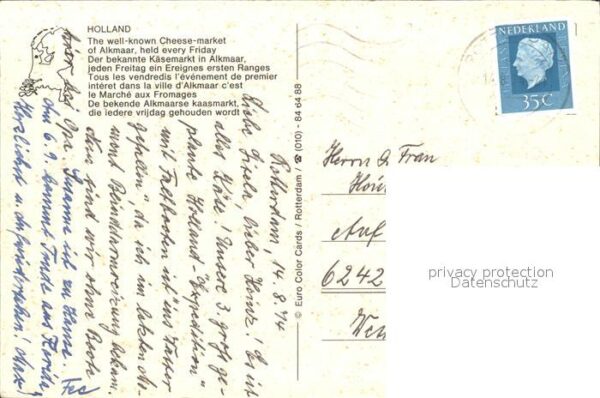 HOLLAND
The well-known Cheese-market
of Alkmaar, held every Friday
Der bekannte Käsemarkt in Alkmaar,
jeden Freitag ein Ereignes ersten Ranges
Tous les vendredis l'événement de premier
intéret dans la ville d'Alkmaar c'est
le Marché aux Fromages
De bekende Alkmaarse kaasmarkt,
die iedere vrijdag gehouden wordt
© Euro Color Cards / Rotterdam / ☎ (010) - 84 64 88
NEDERLAND
35C
Rotterdam, 14.8.74
Liebe Gisela, lieber Heinz! Es ist
alles Käse! Unsere 3. groß ge-
plante Holland-"Expedition"
mit Faltbooten ist "ins Wasser
gefallen", da ich im letzten
Nun sind wir ohne Boote
bei Opa. Susanne ist zu Hause.
Am 6.9. kommt Trude aus
Herzlichst u. auf Wiedersehen!
Herrn u. Frau
Auf
6242
privacy protection
Datenschutz